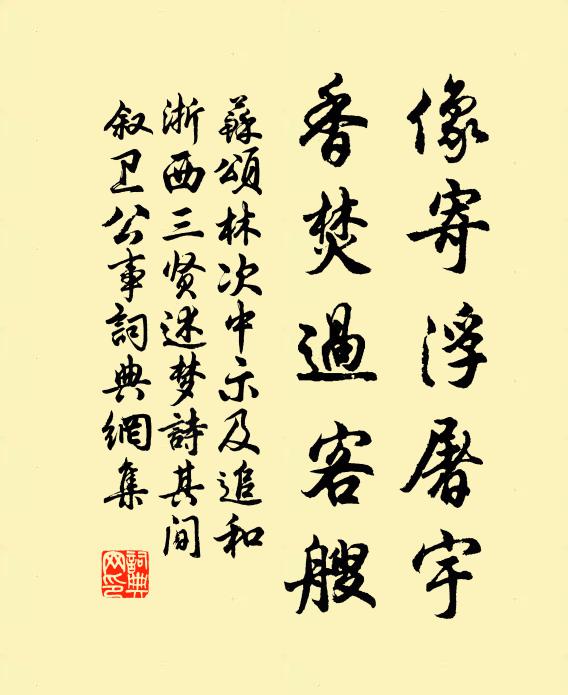 像寄浮屠宇
香焚過客艘
蘇頌林次中示及追和
浙西三贤述梦詩其间
叙卫公事詞典網集
詞典网印